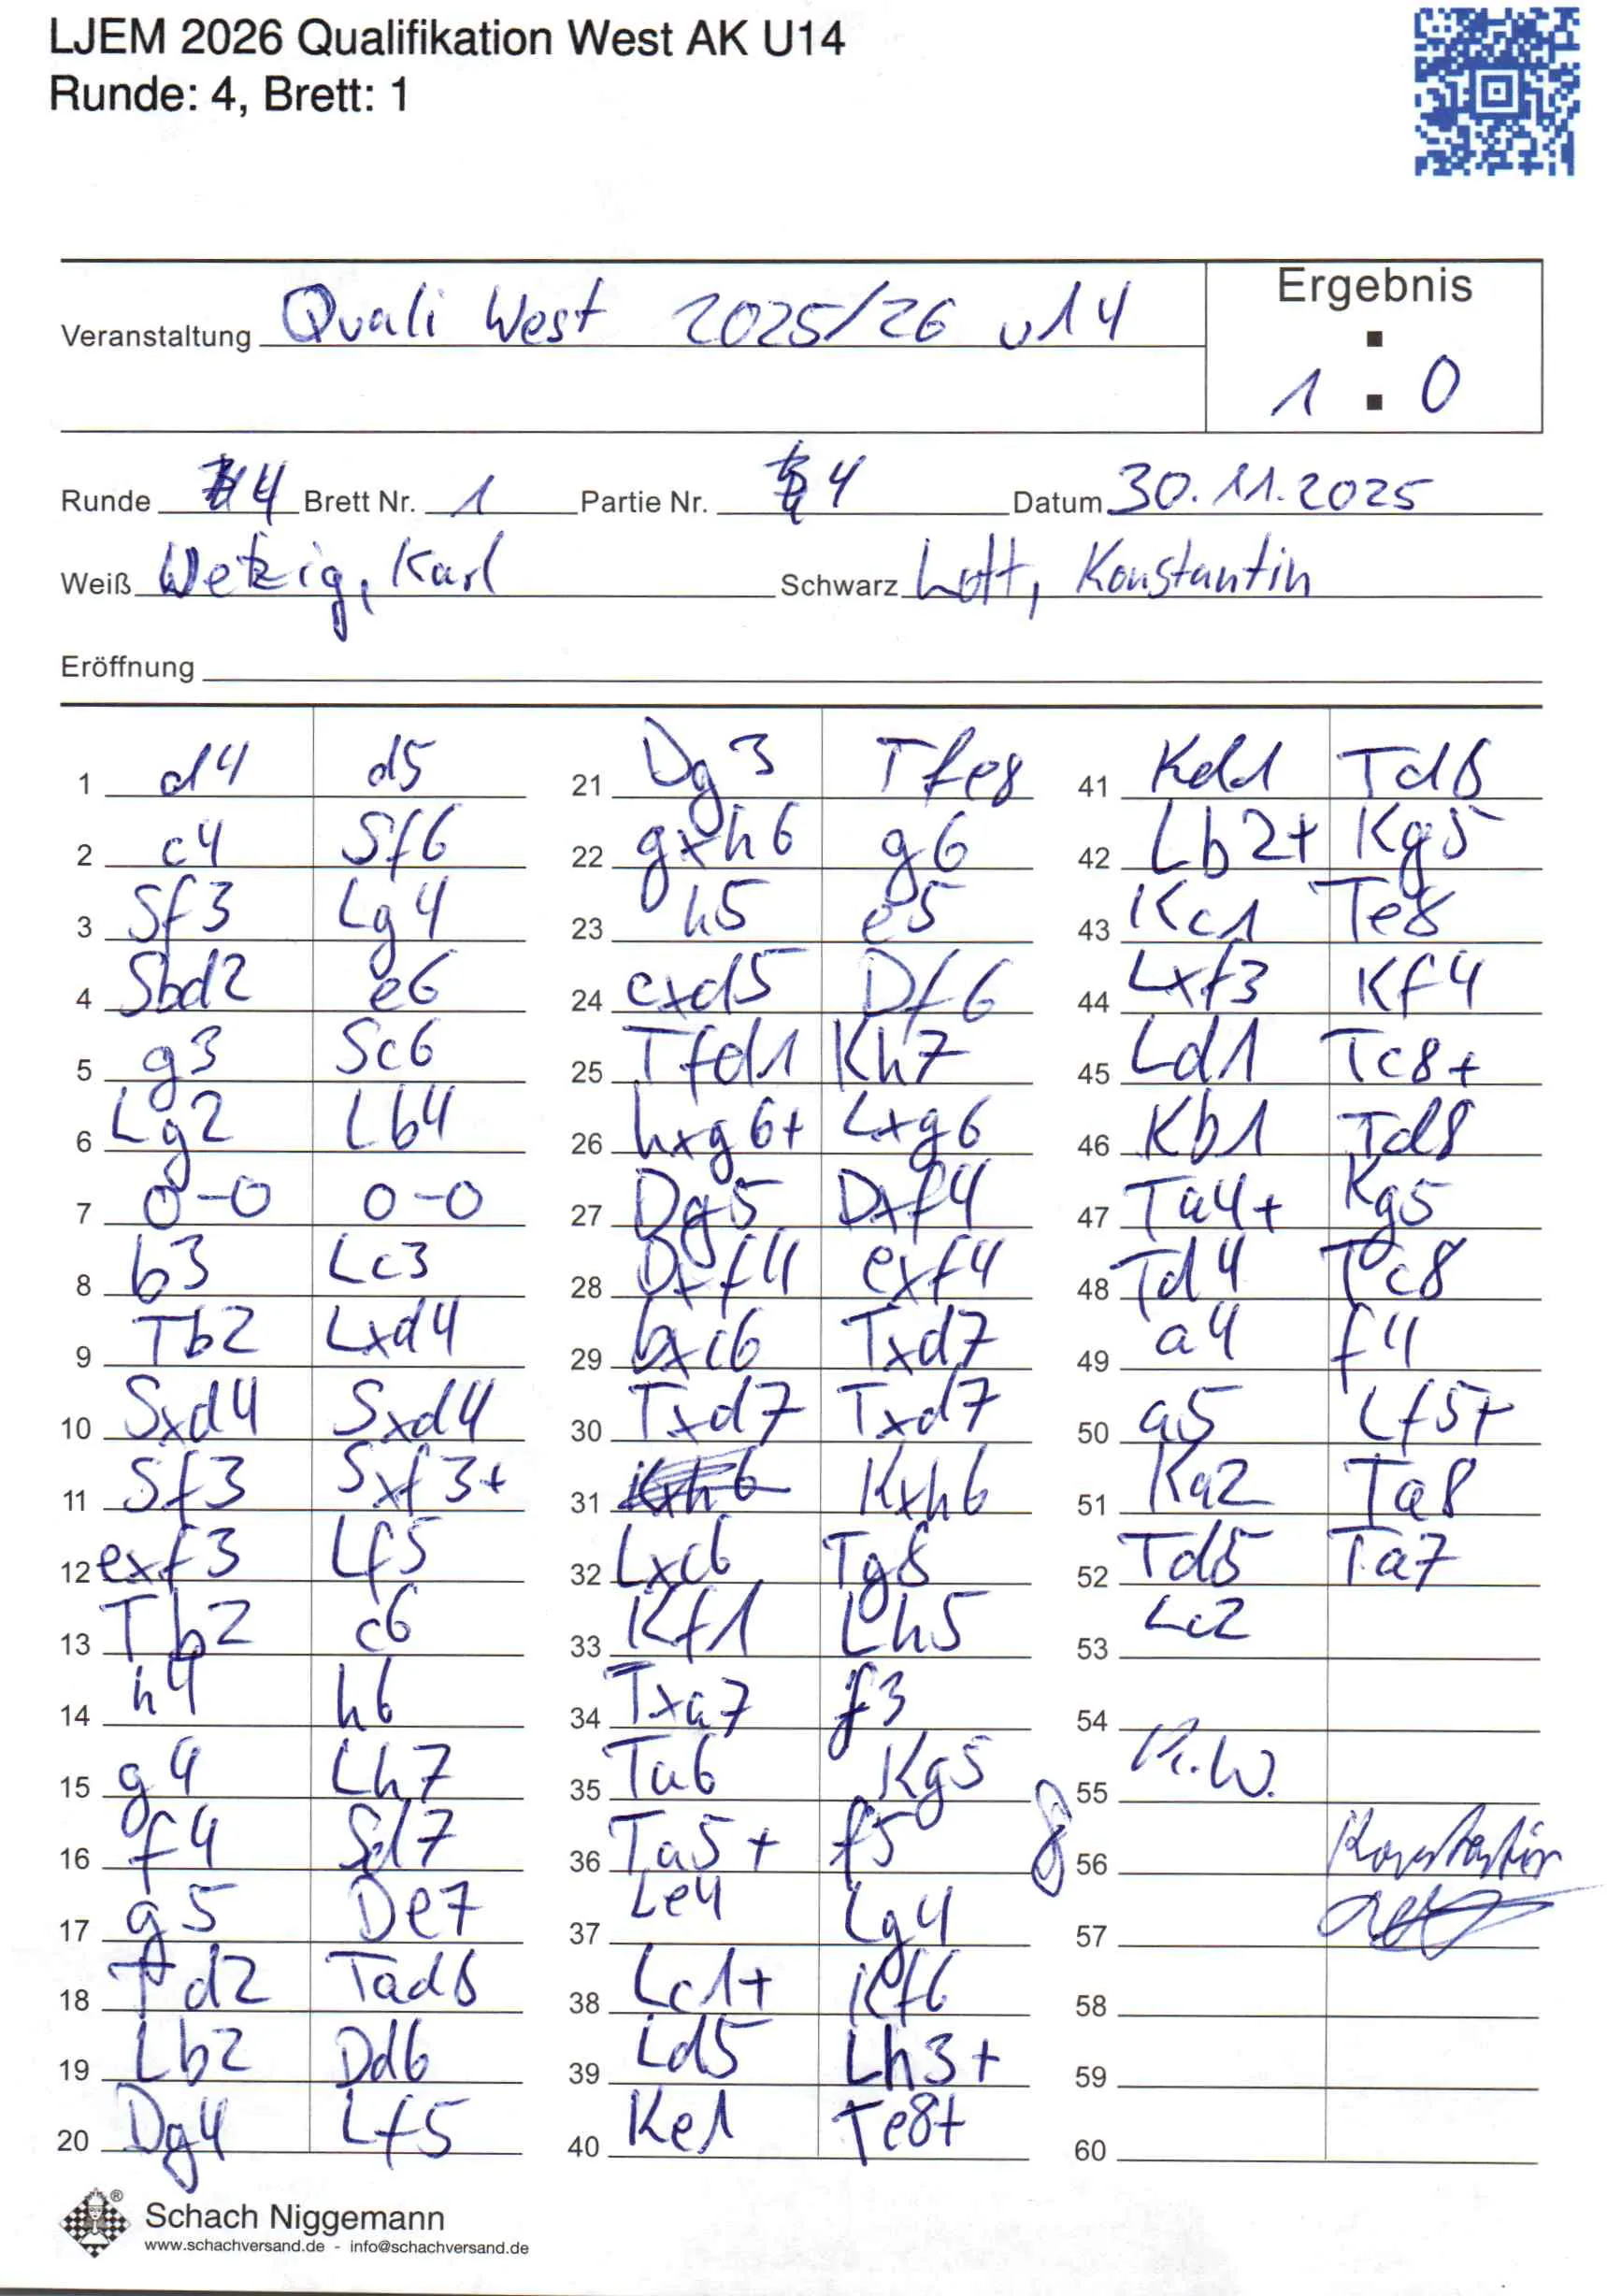 LJEM 2026 Qualifikation West AK U14
Runde: 4, Brett: 1
Ergebnis
Veranstaltung Quali West 2025/26 u14
1 : 0
Runde 4 Brett Nr. 1 Partie Nr. 4 Datum 30.11.2025
Weiß Wetzig, Karl Schwarz Lott, Konstantin
Eröffnung
1 d4 d5
2 c4 Sf6
3 Sf3 Lg4
4 Sbd2 e6
5 g3 Sc6
6 Lg2 Lb4
7 0-0 0-0
8 b3 Lc3
9 Tb2 Lxd4
10 Sxd4 Sxd4
11 Sf3 Sxf3+
12 exf3 Lf5
13 Tb2 c6
14 h4 h6
15 g4 Lh7
16 f4 Sd7
17 g5 De7
18 Td2 Tad8
19 Lb2 Dd6
20 Dg4 Lf5
21 Dg3 Tfe8
22 gxh6 g6
23 h5 e5
24 cxd5 Df6
25 Tfd1 Kh7
26 hxg6+ Lxg6
27 Dg5 Dxf4
28 Dxf4 exf4
29 bxc6 Txd7
30 Txd7 Txd7
31 Kxh6
32 Lxc6 Tg8
33 Kf1 Lh5
34 Txa7 f3
35 Ta6 Kg5
36 Ta5+ f5
37 Le4 Lg4
38 Lc1+ Kf6
39 Ld5 Lh3+
40 Ke1 Te8+
41 Kd1 Td8
42 Lb2+ Kg5
43 Kc1 Te8
44 Lxf3 Kf4
45 Ld1 Tc8+
46 Kb1 Td8
47 Ta4+ Kg5
48 Td4 Tc8
49 a4 f4
50 a5 Lf5+
51 Ka2 Ta8
52 Td5 Ta7
53 Lc2
54
55 K.W.
8
56 Konstantin
57
58
59
60
Schach Niggemann
www.schachversand.de - info@schachversand.de